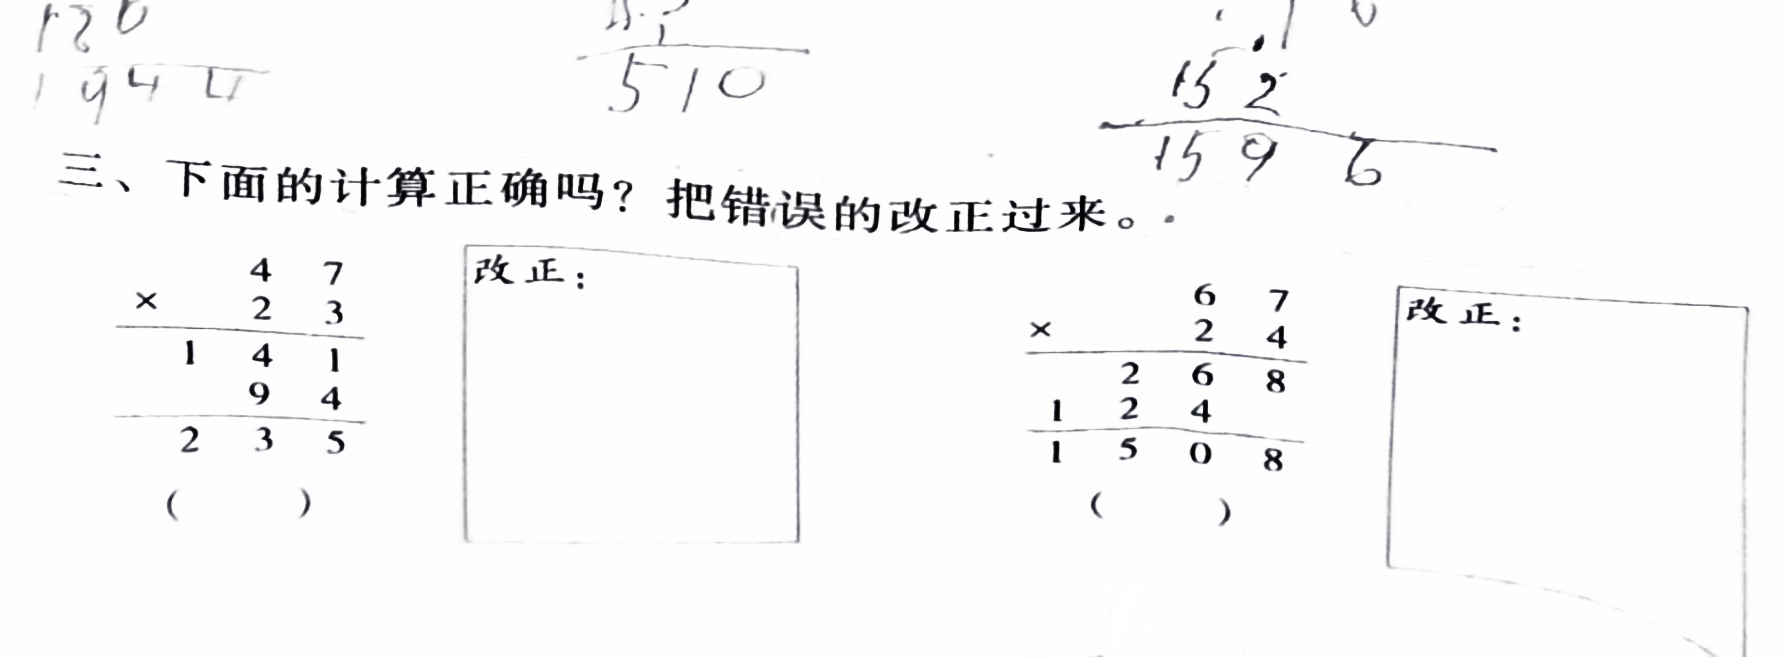 1944
510
152
1596
三、下面的计算正确吗？把错误的改正过来。
4 7
× 2 3
1 4 1
9 4
2 3 5
( )
改正：
6 7
× 2 4
2 6 8
1 2 4
1 5 0 8
( )
改正：